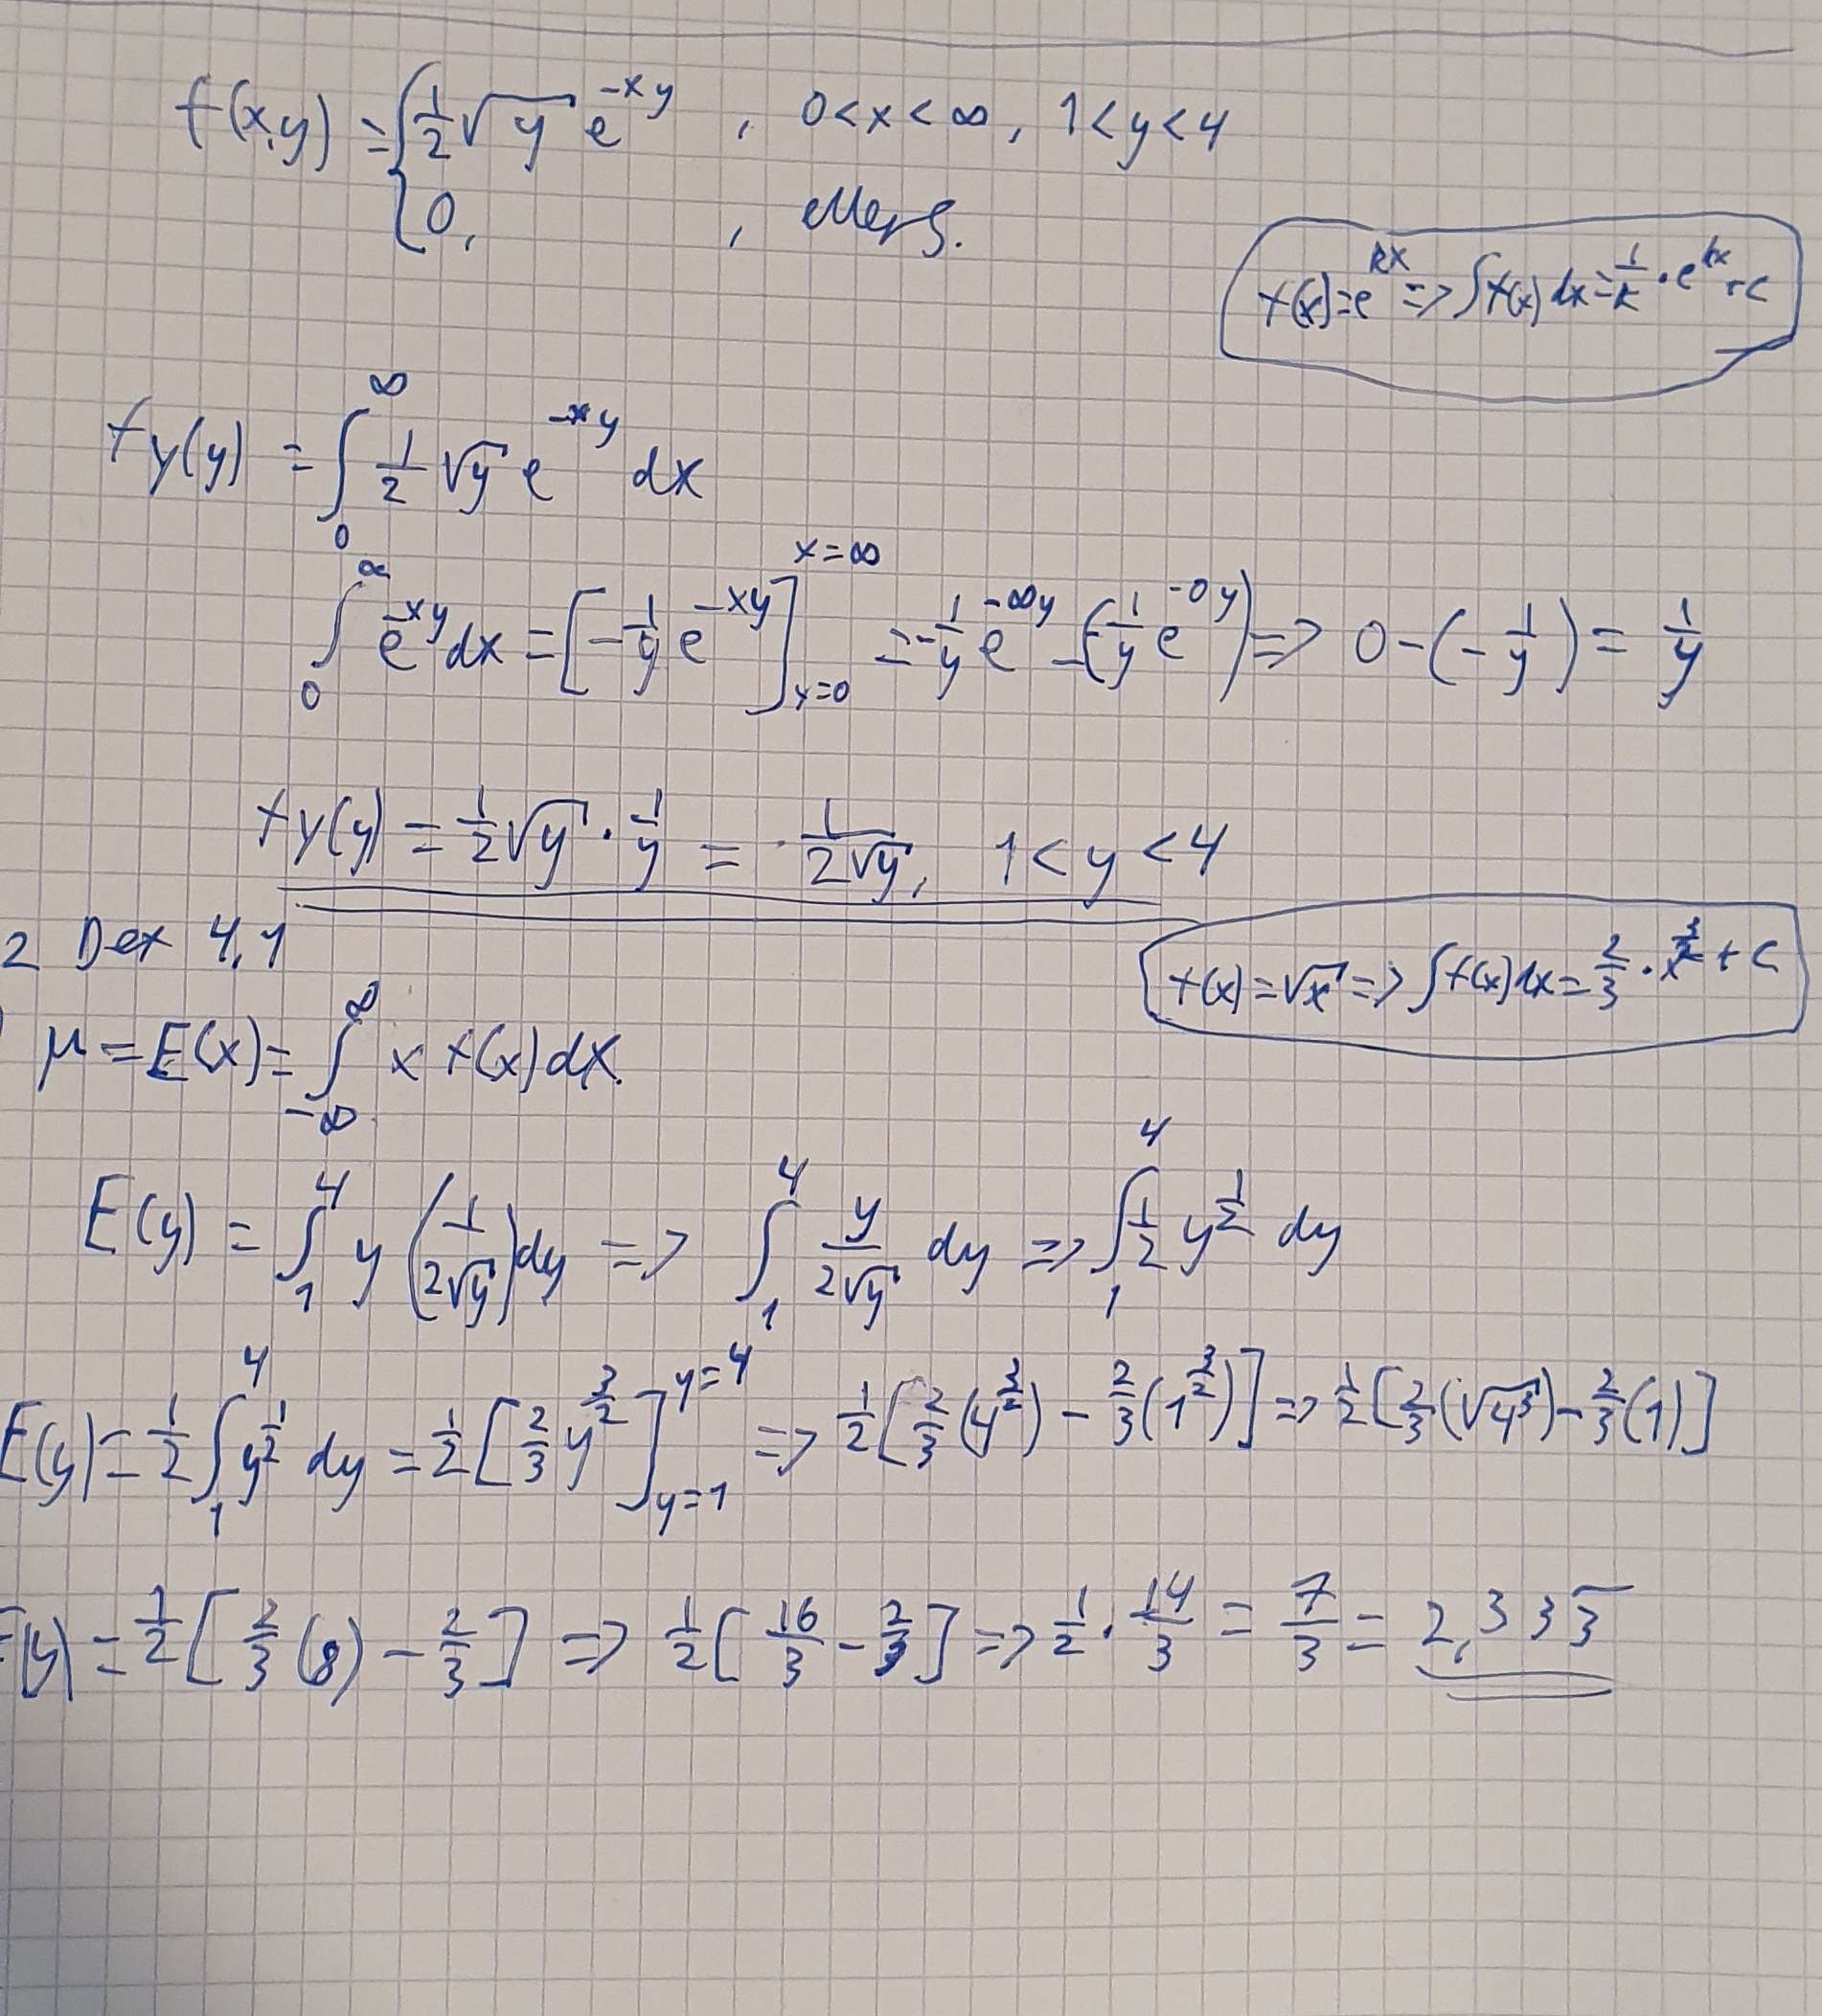 f(x,y) = { 1/2 √y e^(-xy) , 0<x<∞, 1<y<4
0, , ellers.
f(x)=e^(kx) => ∫f(x)dx = 1/k · e^(kx) + c
f_Y(y) = ∫_0^∞ 1/2 √y e^(-xy) dx
∫_0^∞ e^(-xy) dx = [-1/y e^(-xy)]_(x=0)^(x=∞) = -1/y e^(-∞y) - (-1/y e^(-0y)) => 0-(-1/y) = 1/y
f_Y(y) = 1/2 √y · 1/y = 1/(2√y), 1<y<4
2 Def 4.1
f(x)=√x => ∫f(x)dx = 2/3 · x^(3/2) + c
μ = E(x) = ∫_(-∞)^∞ x f(x) dx.
E(y) = ∫_1^4 y (1/(2√y)) dy => ∫_1^4 y/(2√y) dy => ∫_1^4 1/2 y^(1/2) dy
E(y) = 1/2 ∫_1^4 y^(1/2) dy = 1/2 [2/3 y^(3/2)]_(y=1)^(y=4) => 1/2 [2/3 (4^(3/2)) - 2/3 (1^(3/2))] => 1/2 [2/3 (√4³) - 2/3 (1)]
E(y) = 1/2 [2/3 (8) - 2/3] => 1/2 [16/3 - 2/3] => 1/2 · 14/3 = 7/3 = 2,333̅